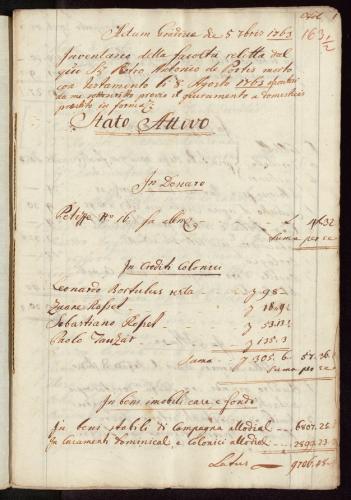 Actum Gradisca die 5 7bris 1763
163 1/2
Inventario della facoltà relitta dal
qm Sr Pietro Antonio de Portis morto
con testamento li 8 Agosto 1763
da me sottoscritto previo il giuramento a domestici
prestito in forma
Stato Attivo
In Denaro
Petizze No 16 fa
Suma per se
In Crediti Colonici
Leonardo Bortulus resta 98
Zuane Rosset
Sebastiano Rosset 53.13
Paolo Tauzar 135.3
Suma 305.6 57.26
Suma per se
In beni mobili, case e fondi
In beni stabili di Campagna allodial 6807.25
In casamenti dominical, e Colonici allodial 2899.23
Latus 9706.48